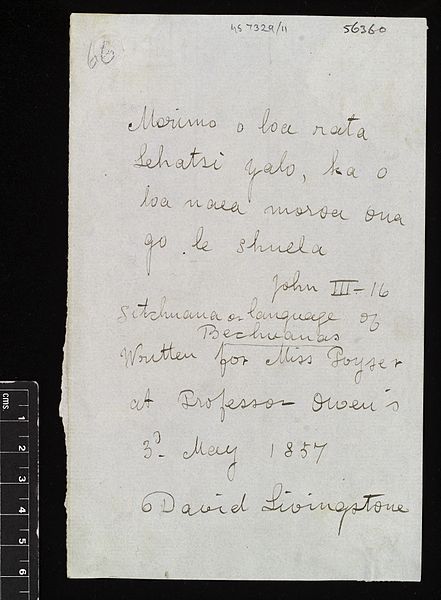 MS 7329/11
56360
66
Morimo o loa rata
Lehatsi yalo, ka o
loa naea moroa ona
go le shuela
John III-16
Sitchuana or language of
Bechuanas
Written for Miss Poyser
at Professor Owen's
3d May 1857
David Livingstone
cms
1
2
3
4
5
6